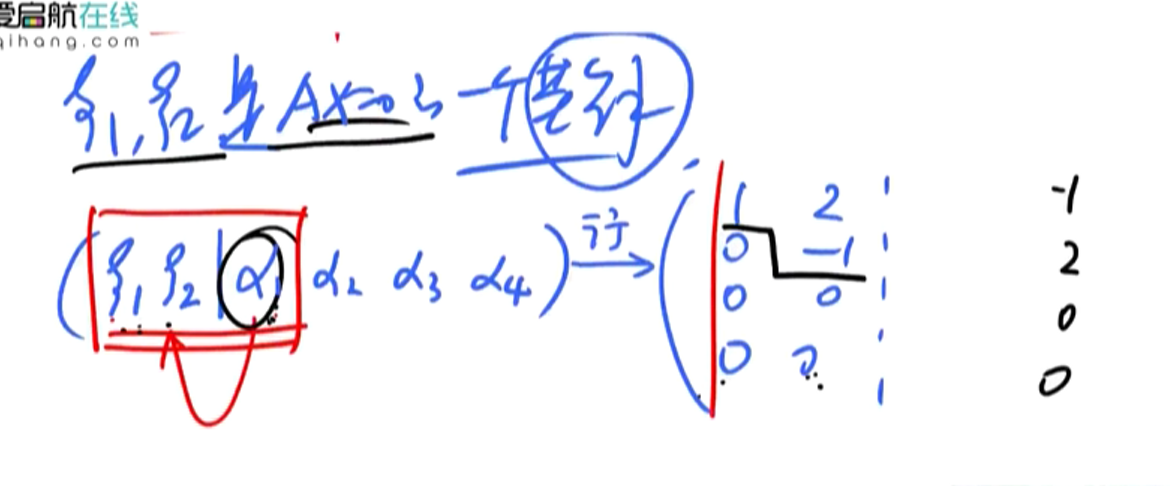 爱启航在线
qihang.com
ξ1, ξ2 是 Ax=0 的 一个基础解
(ξ1 ξ2 | α1 α2 α3 α4) 行→
1 2 -1
0 -1 2
0 0 0
0 0 0